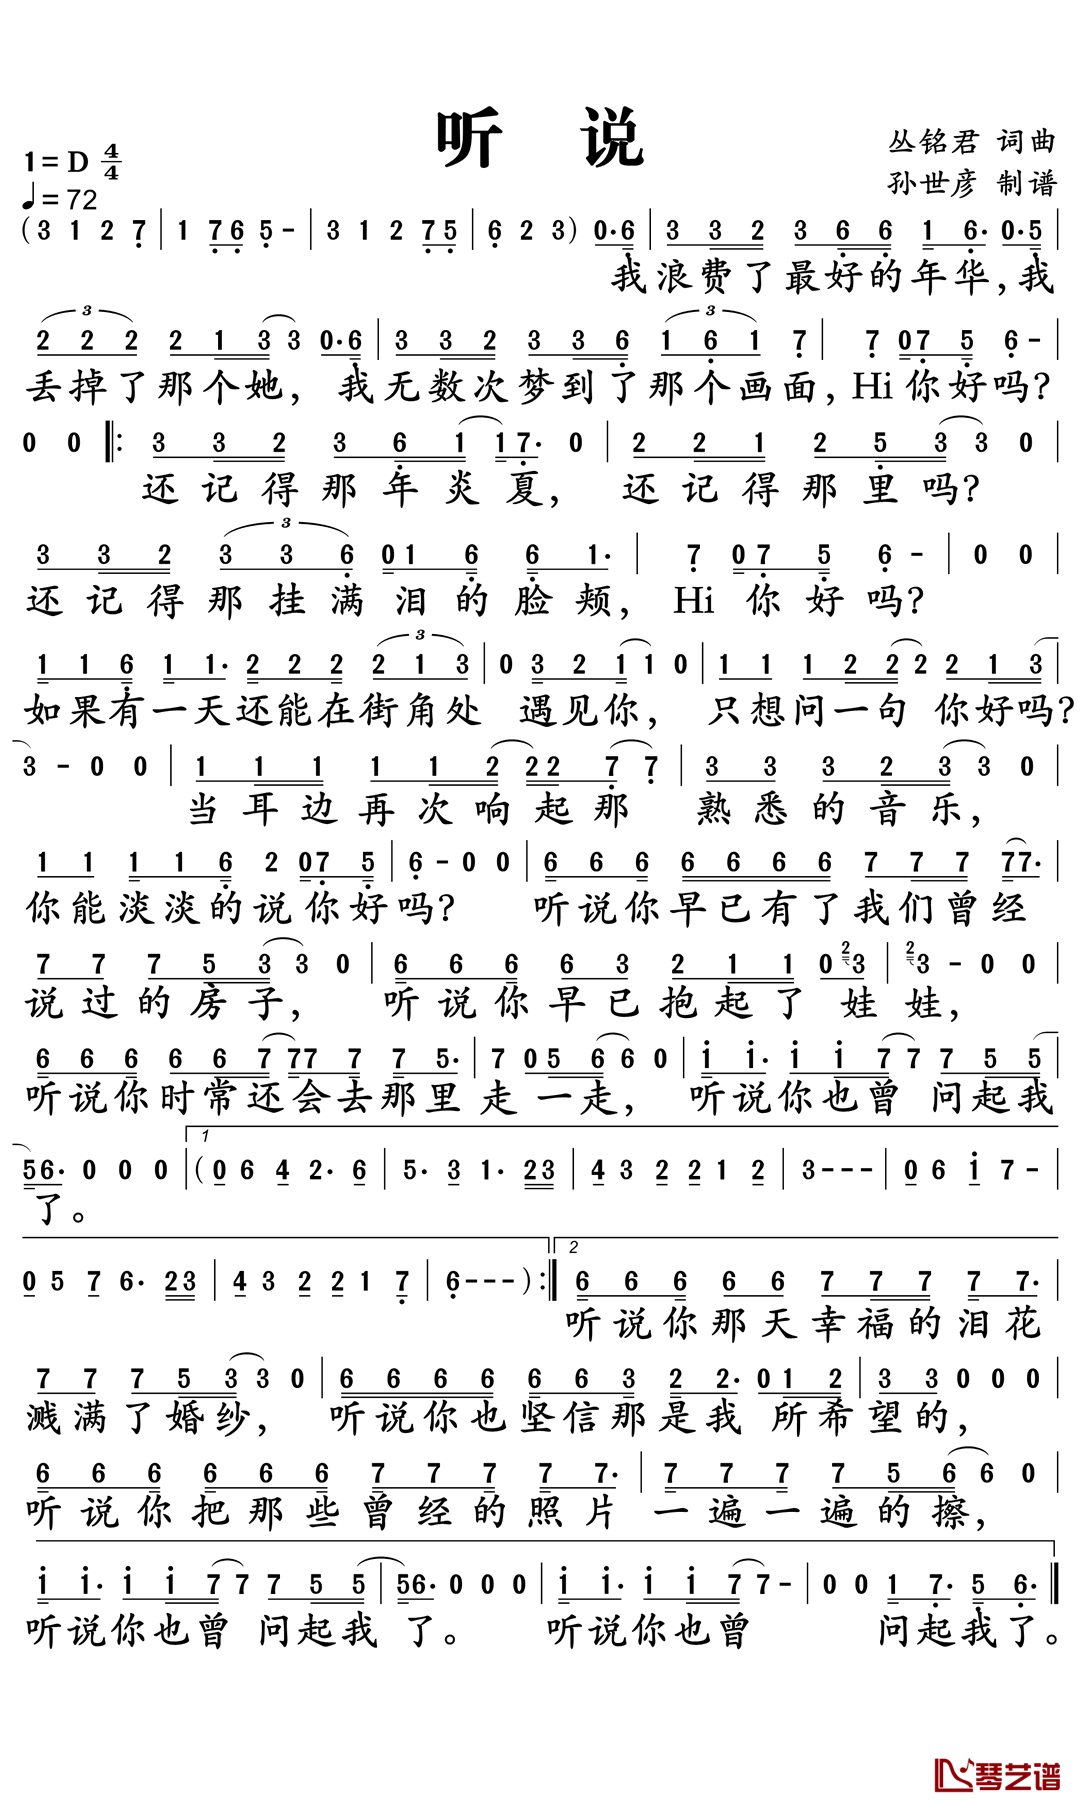 听 说
1=D 4/4
♩=72
丛铭君 词曲
孙世彦 制谱
(3 1 2 7 | 1 7 6 5 - | 3 1 2 7 5 | 6 2 3) 0·6 | 3 3 2 3 6 6 1 6· 0·5 |
我浪费了最好的年华,我
3 3
2 2 2 2 1 3 3 0·6 | 3 3 2 3 3 6 1 6 1 7 | 7 0 7 5 6 - |
丢掉了那个她, 我无数次梦到了那个画面, Hi你好吗?
0 0 ‖: 3 3 2 3 6 1 1 7· 0 | 2 2 1 2 5 3 3 0 |
还记得那年炎夏, 还记得那里吗?
3
3 3 2 3 3 6 0 1 6 6 1· | 7 0 7 5 6 - | 0 0 |
还记得那挂满泪的脸颊, Hi 你好吗?
3
1 1 6 1 1· 2 2 2 2 1 3 | 0 3 2 1 1 0 | 1 1 1 2 2 2 2 1 3 |
如果有一天还能在街角处 遇见你, 只想问一句 你好吗?
3 - 0 0 | 1 1 1 1 1 2 2 2 7 7 | 3 3 3 2 3 3 0 |
当耳边再次响起那 熟悉的音乐,
1 1 1 1 6 2 0 7 5 | 6 - 0 0 | 6 6 6 6 6 6 6 7 7 7 7 7· |
你能淡淡的说你好吗? 听说你早已有了我们曾经
7 7 7 5 3 3 0 | 6 6 6 6 3 2 1 1 0 2 3 | 2 3 - 0 0 |
说过的房子, 听说你早已抱起了 娃娃,
6 6 6 6 6 7 7 7 7 7 5· | 7 0 5 6 6 0 | 1 1· 1 1 7 7 7 5 5 |
听说你时常还会去那里走一走, 听说你也曾 问起我
1
5 6· 0 0 0 | (0 6 4 2· 6 | 5· 3 1· 2 3 | 4 3 2 2 1 2 | 3 - - - | 0 6 1 7 - |
了。
2
0 5 7 6· 2 3 | 4 3 2 2 1 7 | 6 - - - ) :‖ 6 6 6 6 6 7 7 7 7 7· |
听说你那天幸福的泪花
7 7 7 5 3 3 0 | 6 6 6 6 6 6 3 2 2· 0 1 2 | 3 3 0 0 0 |
溅满了婚纱, 听说你也坚信那是我 所希望的,
6 6 6 6 6 6 7 7 7 7 7· | 7 7 7 5 6 6 0 |
听说你把那些曾经的照片 一遍一遍的擦,
1 1· 1 1 7 7 7 5 5 | 5 6· 0 0 0 | 1 1· 1 1 7 7 - | 0 0 1 7· 5 6· ‖
听说你也曾 问起我 了。 听说你也曾 问起我了。
琴艺谱